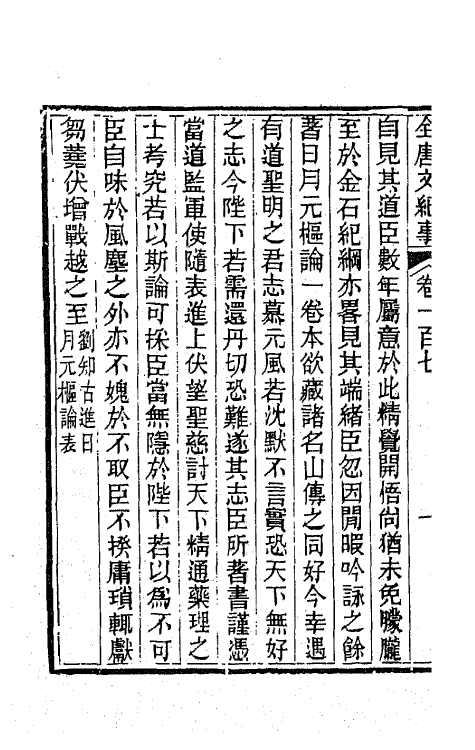 全唐文紀事 卷一百七 一
自見其道臣數年屬意於此精覺開悟尙猶未免矇矓
至於金石紀綱亦畧見其端緒臣忽因閒暇吟詠之餘
著日月元樞論一卷本欲藏諸名山傳之同好今幸遇
有道聖明之君志慕元風若沈默不言實恐天下無好
之志今陛下若需還丹切恐難遂其志臣所著書謹憑
當道監軍使隨表進上伏望聖慈討天下精通藥理之
士考究若以斯論可採臣當無隱於陛下若以爲不可
臣自味於風塵之外亦不媿於不取臣不揆庸瑣輒獻
芻蕘伏增戰越之至劉知古進日
月元樞論表